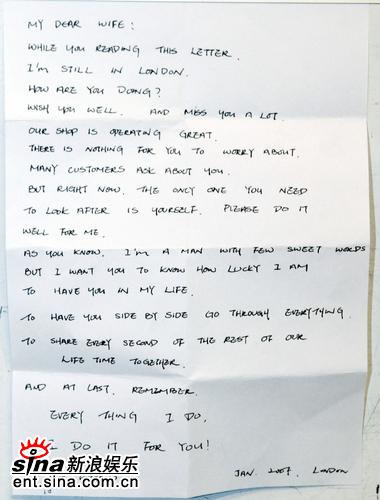 MY DEAR WIFE:
WHILE YOU READING THIS LETTER.
I'M STILL IN LONDON.
HOW ARE YOU DOING?
WISH YOU WELL. AND MISS YOU A LOT.
OUR SHOP IS OPERATING GREAT.
THERE IS NOTHING FOR YOU TO WORRY ABOUT.
MANY CUSTOMERS ASK ABOUT YOU.
BUT RIGHT NOW. THE ONLY ONE YOU NEED
TO LOOK AFTER IS YOURSELF. PLEASE DO IT
WELL FOR ME.
AS YOU KNOW. I'M A MAN WITH FEW SWEET WORDS
BUT I WANT YOU TO KNOW HOW LUCKY I AM
TO HAVE YOU IN MY LIFE.
TO HAVE YOU SIDE BY SIDE GO THROUGH EVERYTHING.
TO SHARE EVERY SECOND OF THE REST OF OUR
LIFE TIME TOGETHER.
AND AT LAST. REMEMBER.
EVERY THING I DO.
I DO IT FOR YOU!
JAN. 2007. LONDON
sina新浪娱乐
ent.sina.com.cn